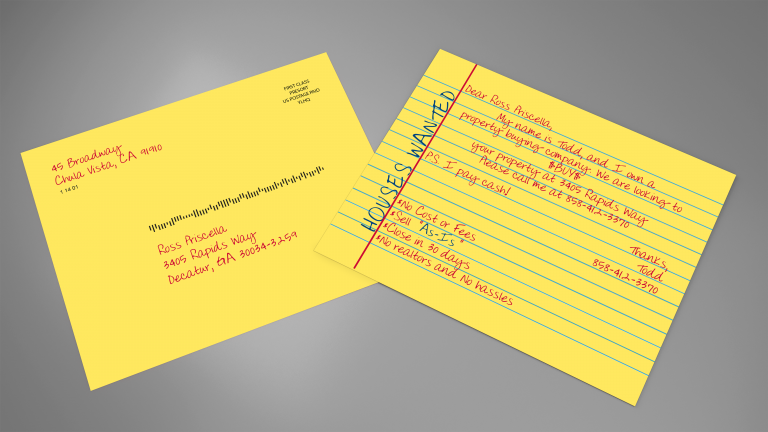 FIRST CLASS
PRESORT
US POSTAGE PAID
YLHQ
45 Broadway
Chula Vista, CA 91910
1 14 01
Ross Priscella
3405 Rapids Way
Decatur, GA 30034-3259
HOUSES WANTED
Dear Ross Priscella,
My name is Todd, and I own a
property buying company. We are looking to
$BUY$
your property at 3405 Rapids Way
Please call me at 858-412-3370
PS I pay cash!
Thanks,
Todd
858-412-3370
*No Cost or Fees
*Sell "As-Is"
*Close in 30 days
*No realtors and No hassles